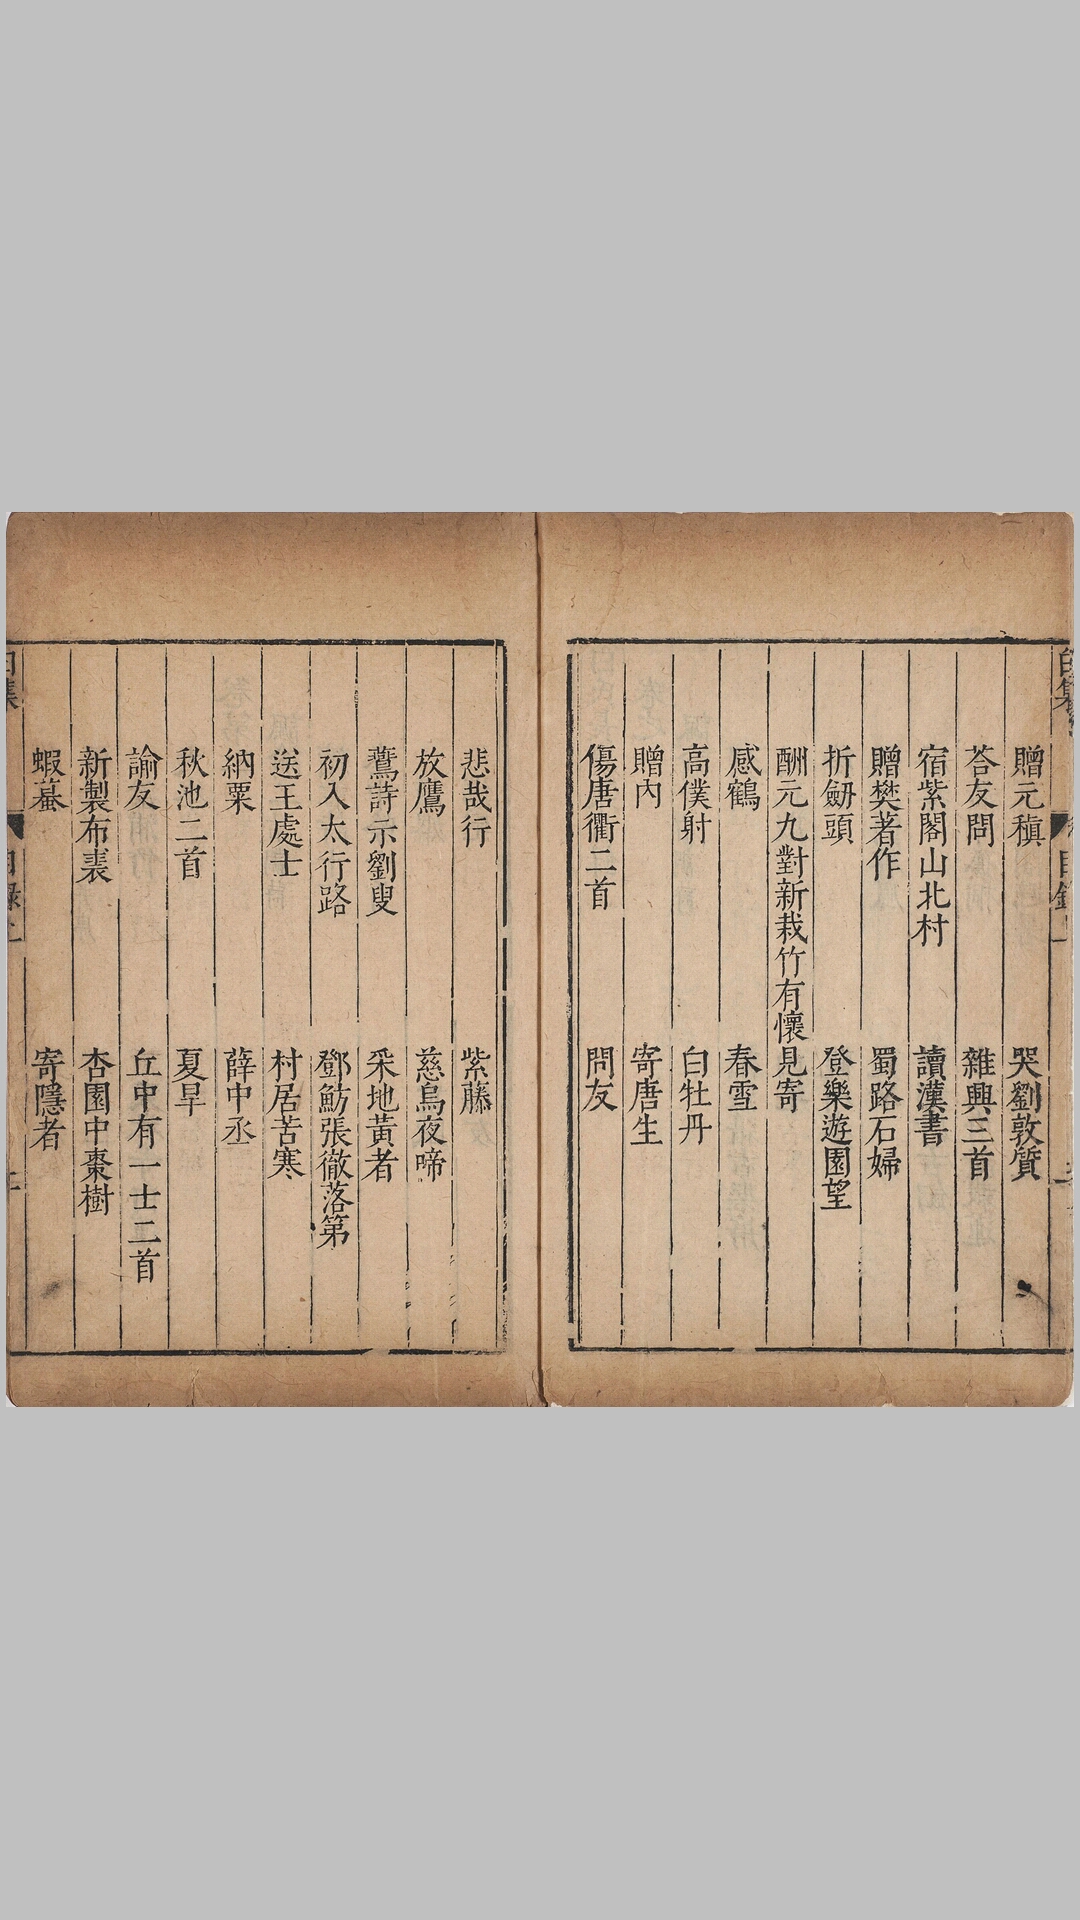 贈元稹　哭劉敦質
荅友問　雜興三首
宿紫閣山北村　讀漢書
贈樊著作　蜀路石婦
折劒頭　登樂遊園望
酬元九對新栽竹有懷見寄
感鶴　春雪
高僕射　白牡丹
贈內　寄唐生
傷唐衢二首　問友
悲哉行　紫藤
放鷹　慈烏夜啼
鷰詩示劉叟　采地黃者
初入太行路　鄧魴張徹落第
送王處士　村居苦寒
納粟　薛中丞
秋池二首　夏旱
諭友　丘中有一士二首
新製布裘　杏園中棗樹
蝦蟇　寄隱者